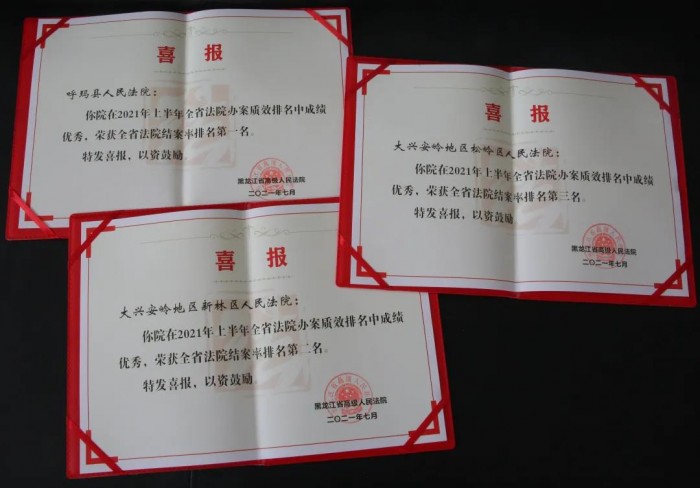 喜报
呼玛县人民法院：
你院在2021年上半年全省法院办案质效排名中成绩
优秀，荣获全省法院结案率排名第一名。
特发喜报，以资鼓励。
黑龙江省高级人民法院
二〇二一年七月
喜报
大兴安岭地区松岭区人民法院：
你院在2021年上半年全省法院办案质效排名中成绩
优秀，荣获全省法院结案率排名第三名。
特发喜报，以资鼓励。
黑龙江省高级人民法院
二〇二一年七月
喜报
大兴安岭地区新林区人民法院：
你院在2021年上半年全省法院办案质效排名中成绩
优秀，荣获全省法院结案率排名第二名。
特发喜报，以资鼓励。
黑龙江省高级人民法院
二〇二一年七月